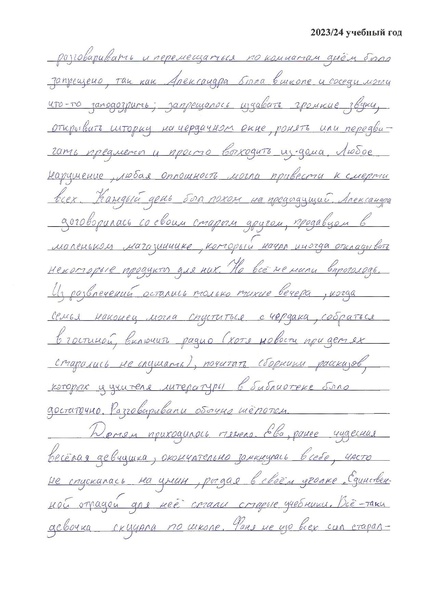 2023/24 учебный год
разговаривать и перемещаться по комнатам днём было
запрещено, так как Александра была в школе и соседи могли
что-то заподозрить; запрещалось издавать громкие звуки,
открывать шторку на чердачном окне, ронять или передви-
гать предметы и просто выходить из дома. Любое
нарушение, любая оплошность могла привести к смерти
всех. Каждый день был похож на предыдущий. Александра
договорилась со своим старым другом, продавцом в
маленьком магазинчике, который начал иногда откладывать
некоторые продукты для них. Но все же жили впроголодь.
Из развлечений остались только тихие вечера, когда
семья наконец могла спуститься с чердака, собраться
в гостиной, включить радио (хотя новости при детях
старались не слушать), почитать сборники рассказов,
которых у учителя литературы в библиотеке было
достаточно. Разговаривали обычно шёпотом.
Детям приходилось тяжело. Ева, ранее чудесная
весёлая девчушка, окончательно замкнулась в себе, часто
не спускалась на ужин, рыдая в своём уголке. Единствен-
ной отрадой для неё стали старые учебники. Всё-таки
девочка скучала по школе. Фаня же изо всех сил старал-